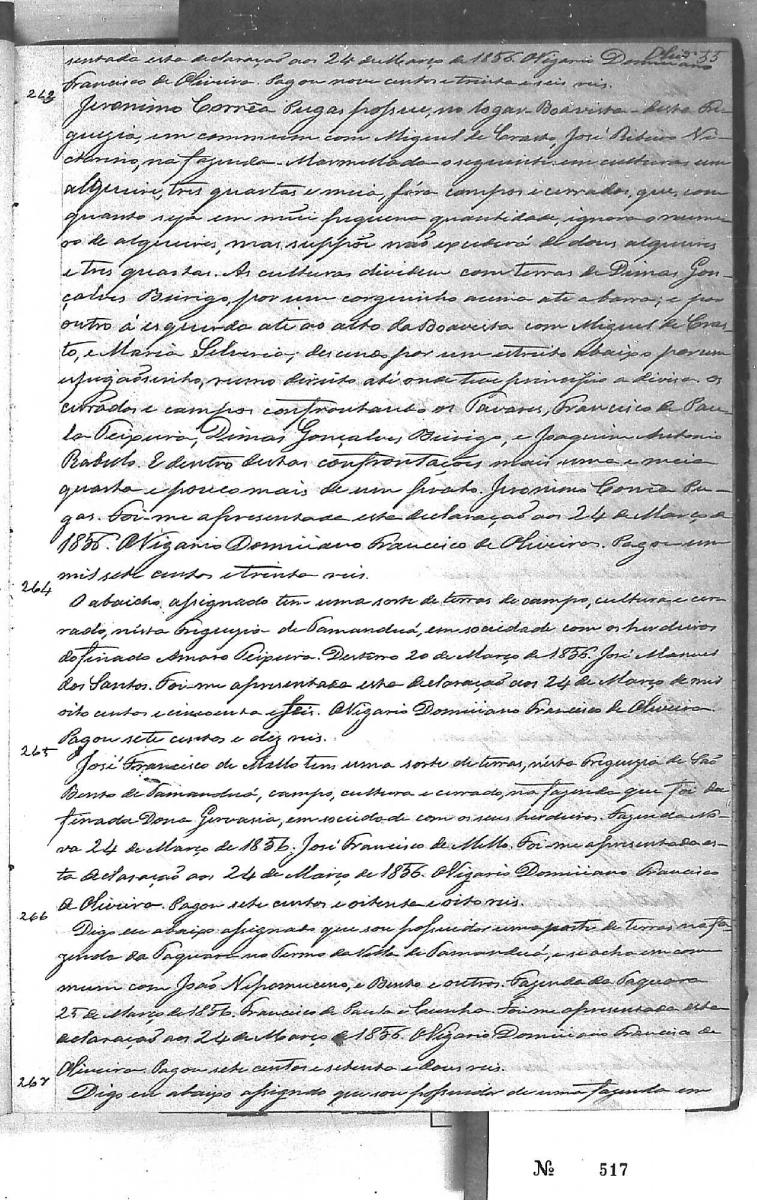 55
sentada esta declaração aos 24 de Março de 1856. O Vigario Dominciano
Francisco de Oliveira. Pagou nove centos e trinta e seis reis.
263
Jeronimo Corrêa Pugas possue, no logar Boavista desta Fre-
guezia, em commum com Miguel de Crasto, José Ribeiro
na fazenda Marmellada o seguinte: em culturas um
alqueire, tres quartas e meia, fóra campos e cerrados, que, com
quanto seja em mui pequena quantidade, ignora o nume-
ro de alqueires, mas suppõe não excederá de dous alqueires
e tres quartas. As culturas dividem com terras de Dimas Gon-
çalves Beirigo, por um corguinho acima até a barra; e por
outro á esquerda até ao alto da Boavista com Miguel de Cras-
to, e Maria Silveria; descendo por um estreito abaixo por um
espigãosinho, rumo direito até onde teve principio a divisa. Os
cerrados e campos confrontando os Tavares, Francisco de Pau-
la Teixeira, Dimas Gonçalves Beirigo, e Joaquim Antonio
Rabelo. E dentro destas confrontações mais uma e meia
quarta e pouco mais de um prato. Jeronimo Corrêa Pu-
gas. Foi-me apresentada esta declaração aos 24 de Março de
1856. O Vigario Dominciano Francisco de Oliveira. Pagou um
mil sete centos e trinta reis.
264
O abaicho assignado tem uma sorte de terras de campo, cultura e cer-
rado, nesta Freguezia de Tamanduá, em sociedade com os herdeiros
do finado Amaro Teixeira. Desterro 20 de Março de 1856. José Manuel
dos Santos. Foi-me apresentada esta declaração aos 24 de Março de mil
oito centos e cincoenta e seis. O Vigario Dominciano Francisco de Oliveira.
Pagou sete centos e dez reis.
265
José Francisco de Mello tem uma sorte de terras, nesta Freguezia de São
Bento de Tamanduá, campo, cultura e cerrado, na fazenda que foi da
finada Dona Gervasia, em sociedade com os seus herdeiros. Fazenda No-
va 24 de Março de 1856. José Francisco de Mello. Foi-me apresentada es-
ta declaração aos 24 de Março de 1856. O Vigario Dominciano Francisco
de Oliveira. Pagou sete centos e oitenta e oito reis.
266
Digo eu abaixo assignado que sou possuidor uma parte de terras na fa-
zenda da Taquara no Termo da Villa de Tamanduá, e se acha em com-
mum com João Nepomuceno, e Bento e outros. Fazenda da Taquara
25 de Março de 1856. Francisco de Paula e Cunha. Foi-me apresentada esta
declaração aos 24 de Março de 1856. O Vigario Dominciano Francisco de
Oliveira. Pagou sete centos e setenta e dous reis.
267
Digo eu abaixo assignado que sou possuidor de uma fazenda em
№ 517